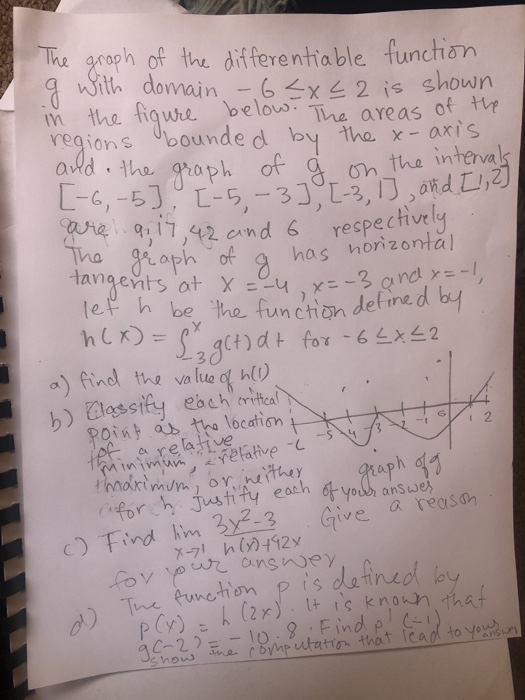 The graph of the differentiable function
g with domain -6 ≤ x ≤ 2 is shown
in the figure below. The areas of the
regions bounded by the x-axis
and the graph of g on the intervals
[-6,-5], [-5,-3], [-3,1], and [1,2]
are 9, 17, 42 and 6 respectively
The graph of g has horizontal
tangents at x=-4, x=-3 and x=-1,
let h be the function defined by
h(x) = ∫_{-3}^{x} g(t) dt for -6 ≤ x ≤ 2
a) find the value of h(1)
b) Classify each critical
point as the location
of a relative
minimum, relative
maximum, or neither
for h. Justify each of your answer
-6 -5 -4 -3 -2 -1 1 2
graph of g
c) Find lim x→1 3x²-3 / h(x)+42x Give a reason
for your answer
d) The function p is defined by
p(x) = h(2x). It is known that
g(-2) = -10.8. Find p'(-1)
show the computation that lead to your answer